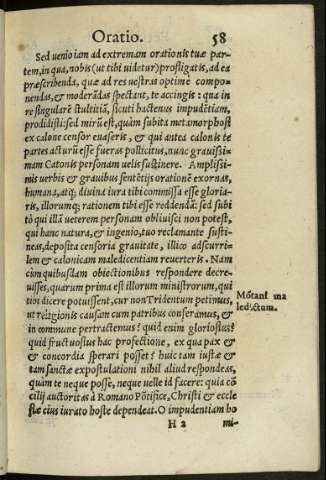 Oratio. 58
Sed uenio iam ad extremam orationis tuæ par-
tem, in qua, nobis (ut tibi uidetur) profligatis, ad ea
præscribenda, quæ ad res uestras optime compo-
nendas, & moderādas spectant, te accingis: qua in
re singularē stultitiā, sicuti hactenus impudētiam,
prodidisti: sed mirū est, quàm subita metamorphosi
ex calone censor euaseris, & qui antea calonis te
partes acturū esse fueras pollicitus, nunc grauissi-
mam Catonis personam uelis sustinere. Amplissi-
mis uerbis & grauibus sentētijs orationē exornas,
humana, atq; diuina iura tibi commissa esse gloria-
ris, illorumq; rationem tibi esse reddendā: sed subi
tò qui illā ueterem personam obliuisci non potest,
qui hanc natura, & ingenio, tuo reclamante susti-
neas, deposita censoria grauitate, illico ad scurri-
lem & calonicam maledicentiam reuerteris. Nam
cùm quibusdam obiectionibus respondere decre-
uisses, quarum prima est illorum ministrorum, qui
tibi dicere potuissent, cur non Tridentum petimus,
ut religionis causam cum patribus conferamus, &
in commune pertractemus? quid enim gloriosius?
quid fructuosius hac profectione, ex qua pax &
& concordia sperari posset? huic tam iustæ &
tam sanctæ expostulationi nihil aliud respondeas,
quàm te neque posse, neque uelle id facere: quia cō
cilij auctoritas à Romano Pōtifice, Christi & eccle
siæ eius iurato hoste dependeat. O impudentiam ho
H 2 mi-
Mōtani ma
ledictum.